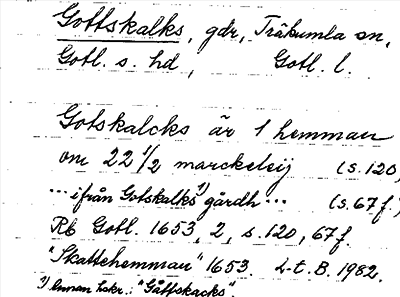 Gottskalks, gdr, Träkumla sn,
Gotl. s. hd, Gotl. l.
Gotskalcks är 1 hemman
om 22 1/2 marckeleij (s.120,
... ifrån Gotskalks 1) gårdh ... (s.67f.)
Rb Gotl. 1653, 2, s.120, 67f.
"Skattehemman" 1653. L-t. B. 1982.
1) Annan hskr.: "Gåttskacks".